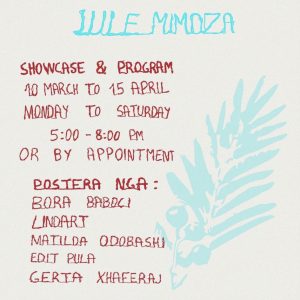 LULE MIMOZA
SHOWCASE & PROGRAM
10 MARCH TO 15 APRIL
MONDAY TO SATURDAY
5:00 - 8:00 PM
OR BY APPOINTMENT
POSTERA NGA:
BORA BABOÇI
LINDART
MATILDA ODOBASHI
EDIT PULA
GERTA XHAFERAJ